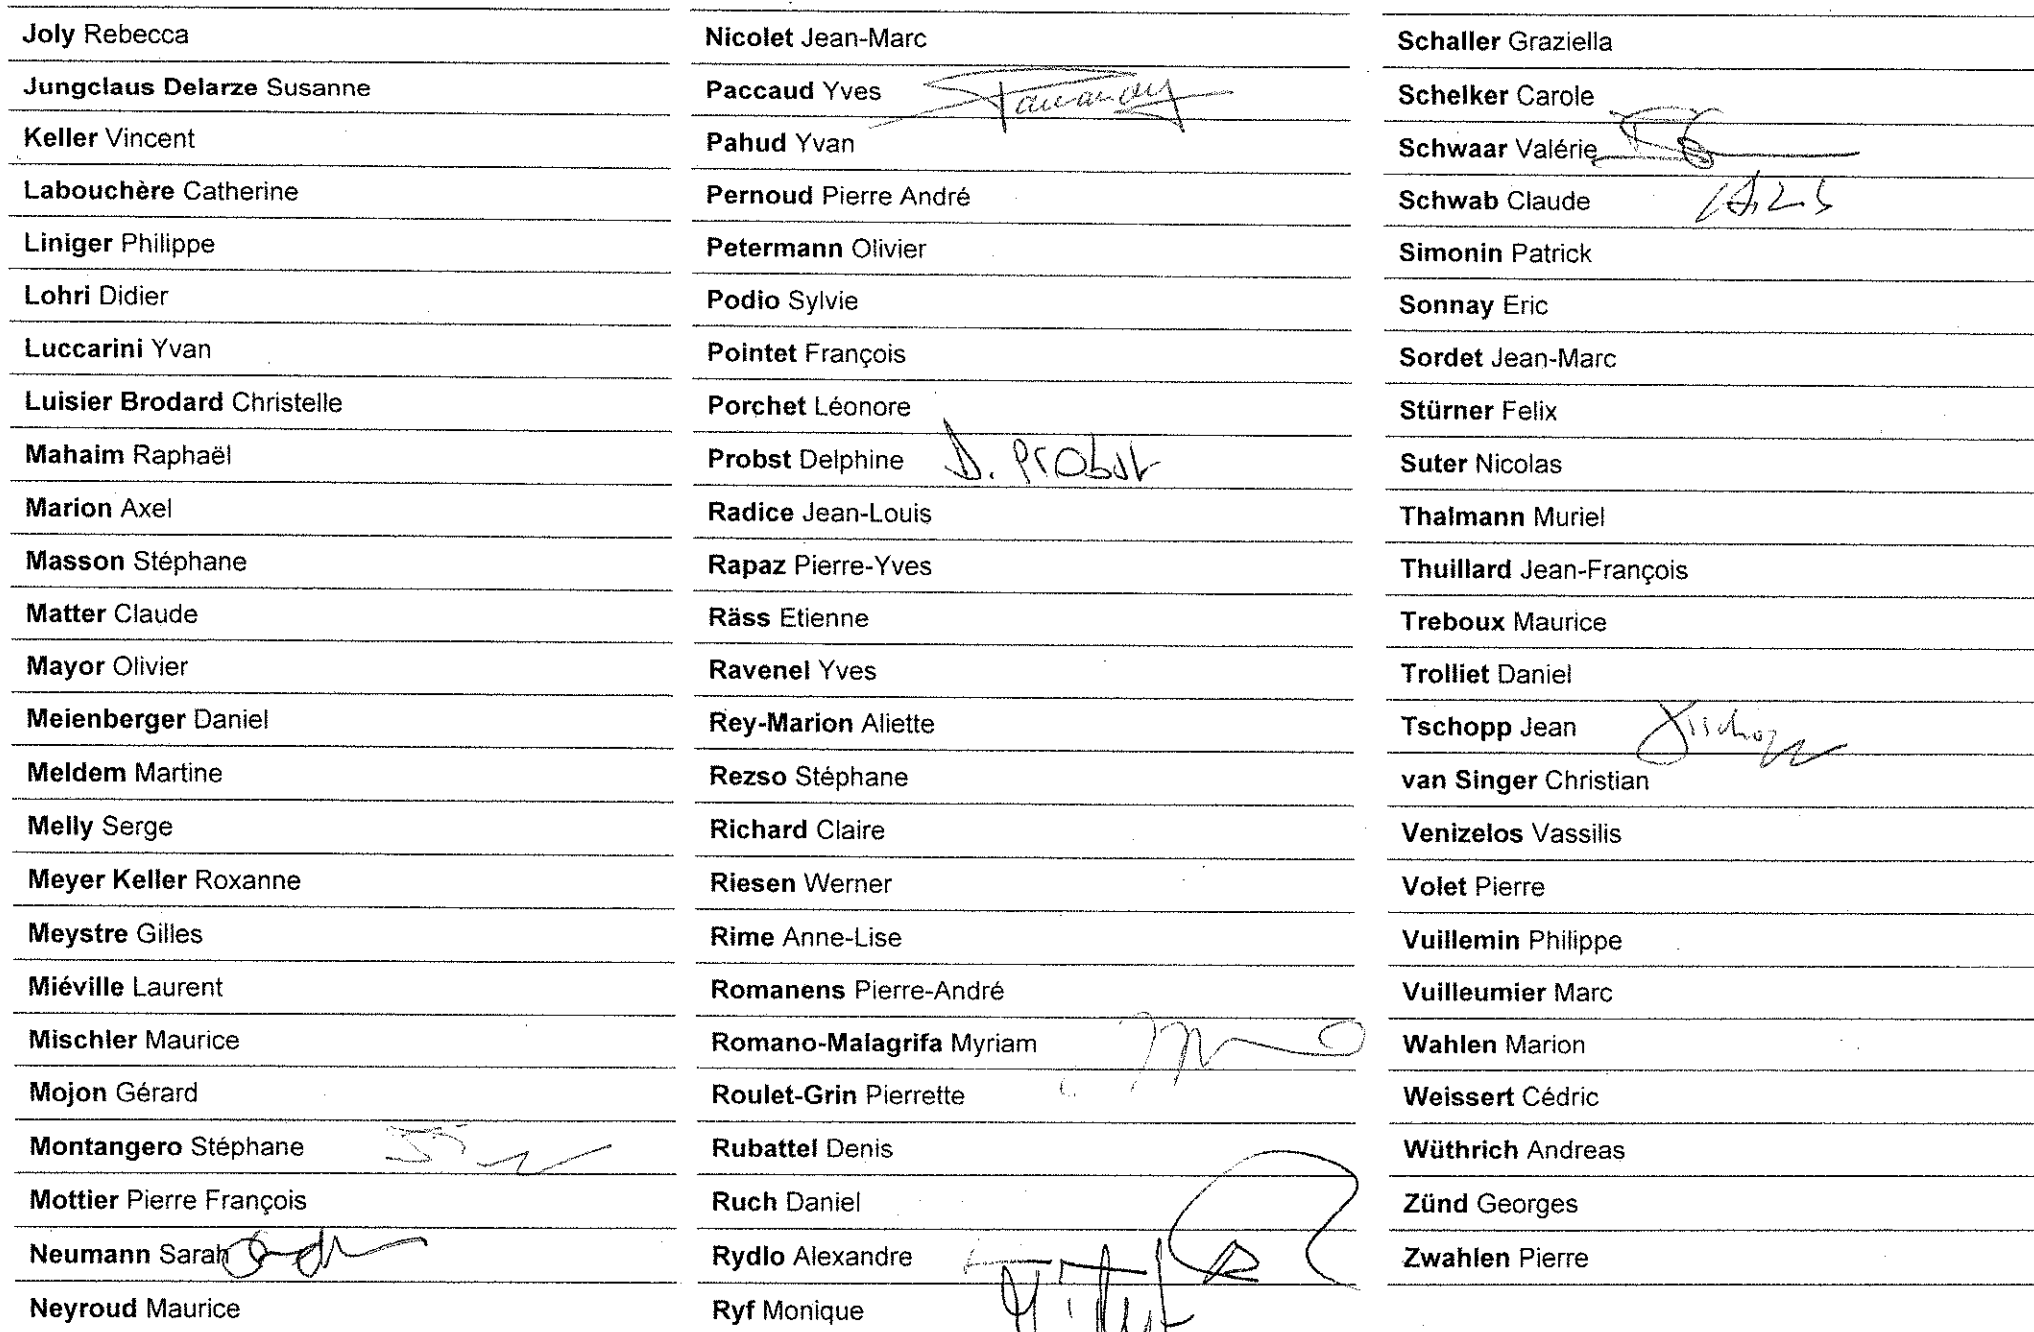 Joly Rebecca
Jungclaus Delarze Susanne
Keller Vincent
Labouchère Catherine
Liniger Philippe
Lohri Didier
Luccarini Yvan
Luisier Brodard Christelle
Mahaim Raphaël
Marion Axel
Masson Stéphane
Matter Claude
Mayor Olivier
Meienberger Daniel
Meldem Martine
Melly Serge
Meyer Keller Roxanne
Meystre Gilles
Miéville Laurent
Mischler Maurice
Mojon Gérard
Montangero Stéphane
Mottier Pierre François
Neumann Sarah
Neyroud Maurice
Nicolet Jean-Marc
Paccaud Yves
Pahud Yvan
Pernoud Pierre André
Petermann Olivier
Podio Sylvie
Pointet François
Porchet Léonore
Probst Delphine D. Probst
Radice Jean-Louis
Rapaz Pierre-Yves
Räss Etienne
Ravenel Yves
Rey-Marion Aliette
Rezso Stéphane
Richard Claire
Riesen Werner
Rime Anne-Lise
Romanens Pierre-André
Romano-Malagrifa Myriam
Roulet-Grin Pierrette
Rubattel Denis
Ruch Daniel
Rydlo Alexandre
Ryf Monique
Schaller Graziella
Schelker Carole
Schwaar Valérie
Schwab Claude
Simonin Patrick
Sonnay Eric
Sordet Jean-Marc
Stürner Felix
Suter Nicolas
Thalmann Muriel
Thuillard Jean-François
Treboux Maurice
Trolliet Daniel
Tschopp Jean
van Singer Christian
Venizelos Vassilis
Volet Pierre
Vuillemin Philippe
Vuilleumier Marc
Wahlen Marion
Weissert Cédric
Wüthrich Andreas
Zünd Georges
Zwahlen Pierre